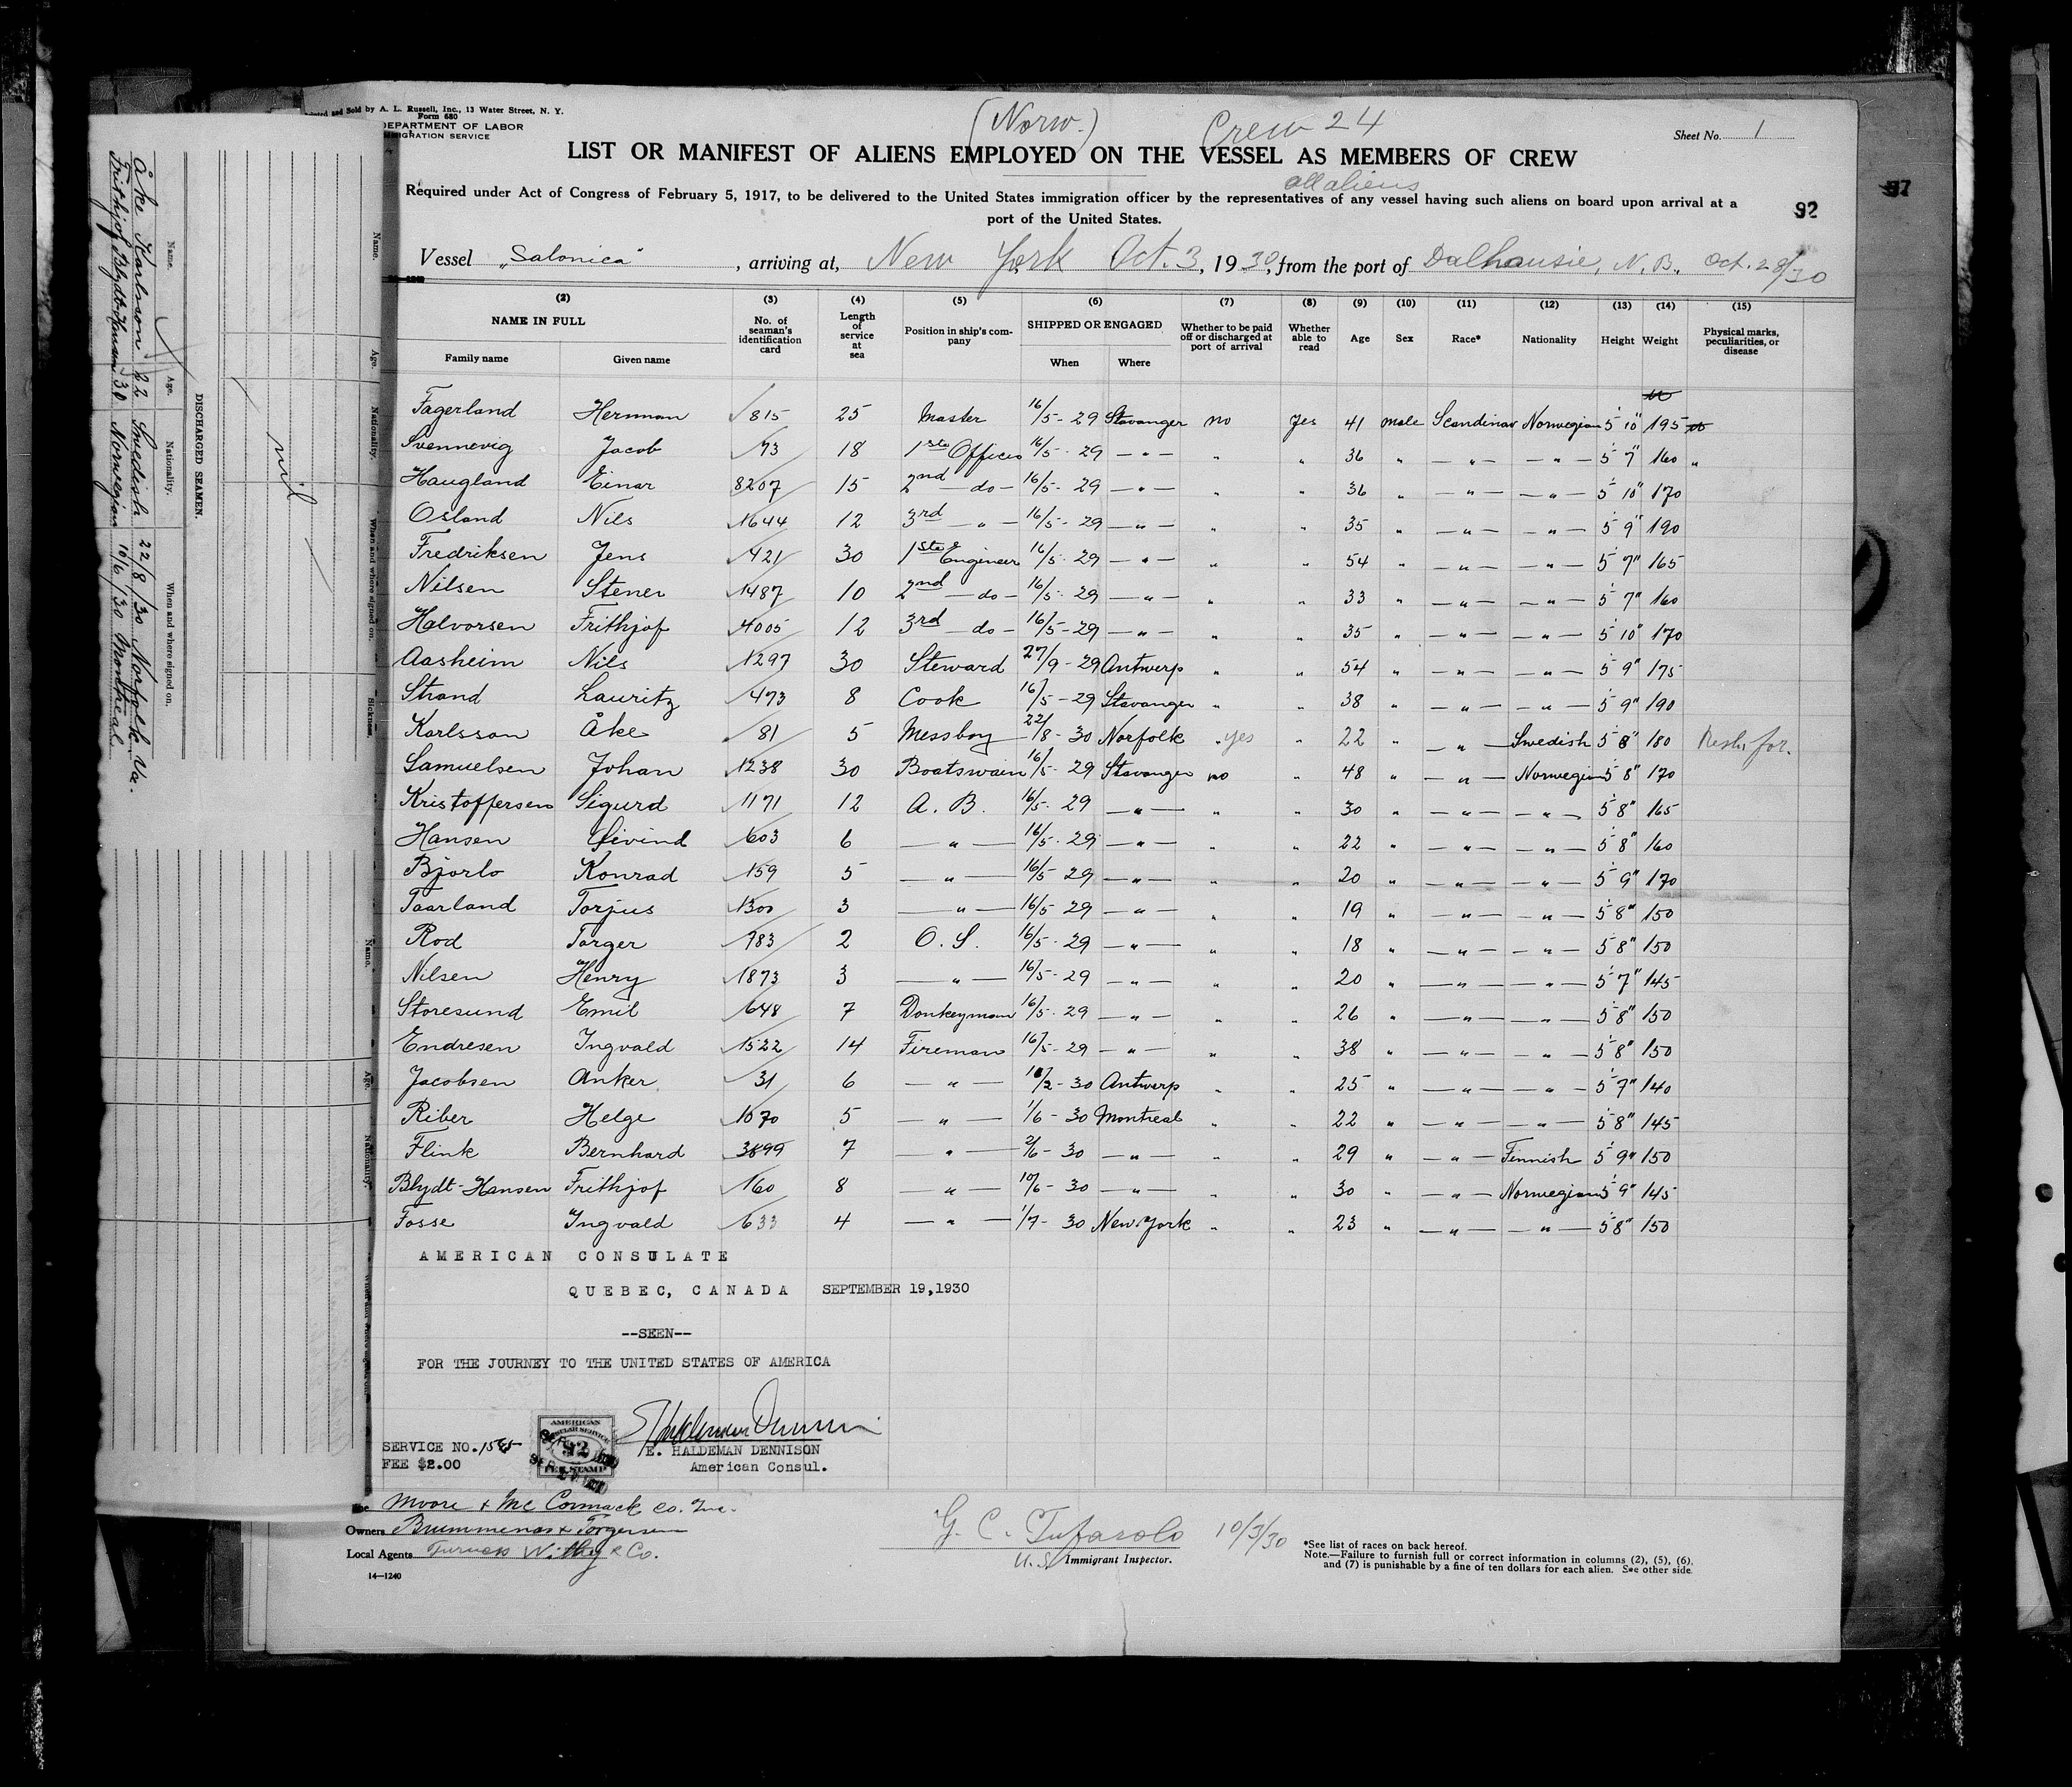 Printed and Sold by A. L. Russell, Inc., 13 Water Street, N. Y.
Form 680
DEPARTMENT OF LABOR
IMMIGRATION SERVICE
(Norw.) Crew 24
Sheet No. 1
LIST OR MANIFEST OF ALIENS EMPLOYED ON THE VESSEL AS MEMBERS OF CREW
all aliens
Required under Act of Congress of February 5, 1917, to be delivered to the United States immigration officer by the representatives of any vessel having such aliens on board upon arrival at a
port of the United States.
92
97
Vessel „Salonica", arriving at, New York Oct. 3, 1930, from the port of Dalhousie, N. B., Oct. 28/30
(2) (3) (4) (5) (6) (7) (8) (9) (10) (11) (12) (13) (14) (15)
NAME IN FULL No. of seaman's identification card Length of service at sea Position in ship's company SHIPPED OR ENGAGED Whether to be paid off or discharged at port of arrival Whether able to read Age Sex Race* Nationality Height Weight Physical marks, peculiarities, or disease
Family name Given name When Where
Fagerland Herman 815 25 Master 16/5-29 Stavanger no Yes 41 male Scandinav Norwegian 5'10" 195
Svennevig Jacob 73 18 1ste Officer 16/5-29 —"— " " 36 " —"— —"— 5'7" 160 "
Haugland Einar 8207 15 2nd —do— 16/5-29 —"— " " 36 " —"— —"— 5'10" 170
Osland Nils 1644 12 3rd —"— 16/5-29 —"— " " 35 " —"— —"— 5'9" 190
Fredriksen Jens 421 30 1ste Engineer 16/5-29 —"— " " 54 " —"— —"— 5'7" 165
Nilsen Stener 1487 10 2nd —do— 16/5-29 —"— " " 33 " —"— —"— 5'7" 160
Halvorsen Frithjof 4005 12 3rd —do— 16/5-29 —"— " " 35 " —"— —"— 5'10" 170
Aasheim Nils 1297 30 Steward 27/9-29 Antwerp " " 54 " —"— —"— 5'9" 175
Strand Lauritz 473 8 Cook 16/5-29 Stavanger " " 38 " —"— —"— 5'9" 190
Karlsson Åke 81 5 Messboy 22/8-30 Norfolk " yes " 22 " —"— Swedish 5'8" 180
Samuelsen Johan 1238 30 Boatswain 16/5-29 Stavanger no " 48 " —"— Norwegian 5'8" 170
Kristoffersen Sigurd 1171 12 A. B. 16/5-29 —"— " " 30 " —"— —"— 5'8" 165
Hansen Øivind 603 6 —"— 16/5-29 —"— " " 22 " —"— —"— 5'8" 160
Bjorlo Konrad 159 5 —"— 16/5-29 —"— " " 20 " —"— —"— 5'9" 170
Taarland Torjus 1300 3 —"— 16/5-29 —"— " " 19 " —"— —"— 5'8" 150
Rod Torger 783 2 O. S. 16/5-29 —"— " " 18 " —"— —"— 5'8" 150
Nilsen Henry 1873 3 —"— 16/5-29 —"— " " 20 " —"— —"— 5'7" 145
Storesund Emil 648 7 Donkeyman 16/5-29 —"— " " 26 " —"— —"— 5'8" 150
Endresen Ingvald 1522 14 Fireman 16/5-29 —"— " " 38 " —"— —"— 5'8" 150
Jacobsen Anker 31 6 —"— 18/2-30 Antwerp " " 25 " —"— —"— 5'7" 140
Riber Helge 1070 5 —"— 1/6-30 Montreal " " 22 " —"— —"— 5'8" 145
Flink Bernhard 3899 7 —"— 2/6-30 —"— " " 29 " —"— Finnish 5'9" 150
Blydt-Hansen Frithjof 160 8 —"— 10/6-30 —"— " " 30 " —"— Norwegian 5'9" 145
Fosse Ingvald 633 4 —"— 1/7-30 New York " " 23 " —"— —"— 5'8" 150
AMERICAN CONSULATE
QUEBEC, CANADA SEPTEMBER 19, 1930
--SEEN--
FOR THE JOURNEY TO THE UNITED STATES OF AMERICA
AMERICAN
FEE STAMP
SERVICE NO. 1565
E. HALDEMAN DENNISON
FEE $2.00
American Consul.
Moore & Mc Cormack Co. Inc.
Owners Brummenas & Torgersen
Local Agents Furness Withy & Co.
14—1240
G. C. Tufarolo 10/3/30
U.S. Immigrant Inspector.
*See list of races on back hereof.
Note.—Failure to furnish full or correct information in columns (2), (5), (6),
and (7) is punishable by a fine of ten dollars for each alien. See other side.
DISCHARGED SEAMEN.
Name. Age. Nationality. When and where signed on.
Åke Karlsson 22 Swedish 22/8/30 Norfolk Va.
Frithjof Blydt-Hansen 30 Norwegian 10/6/30 Montreal
Name. Age. Nationality. When and where signed on. Sickness.
nil
Name. Age. Nationality.